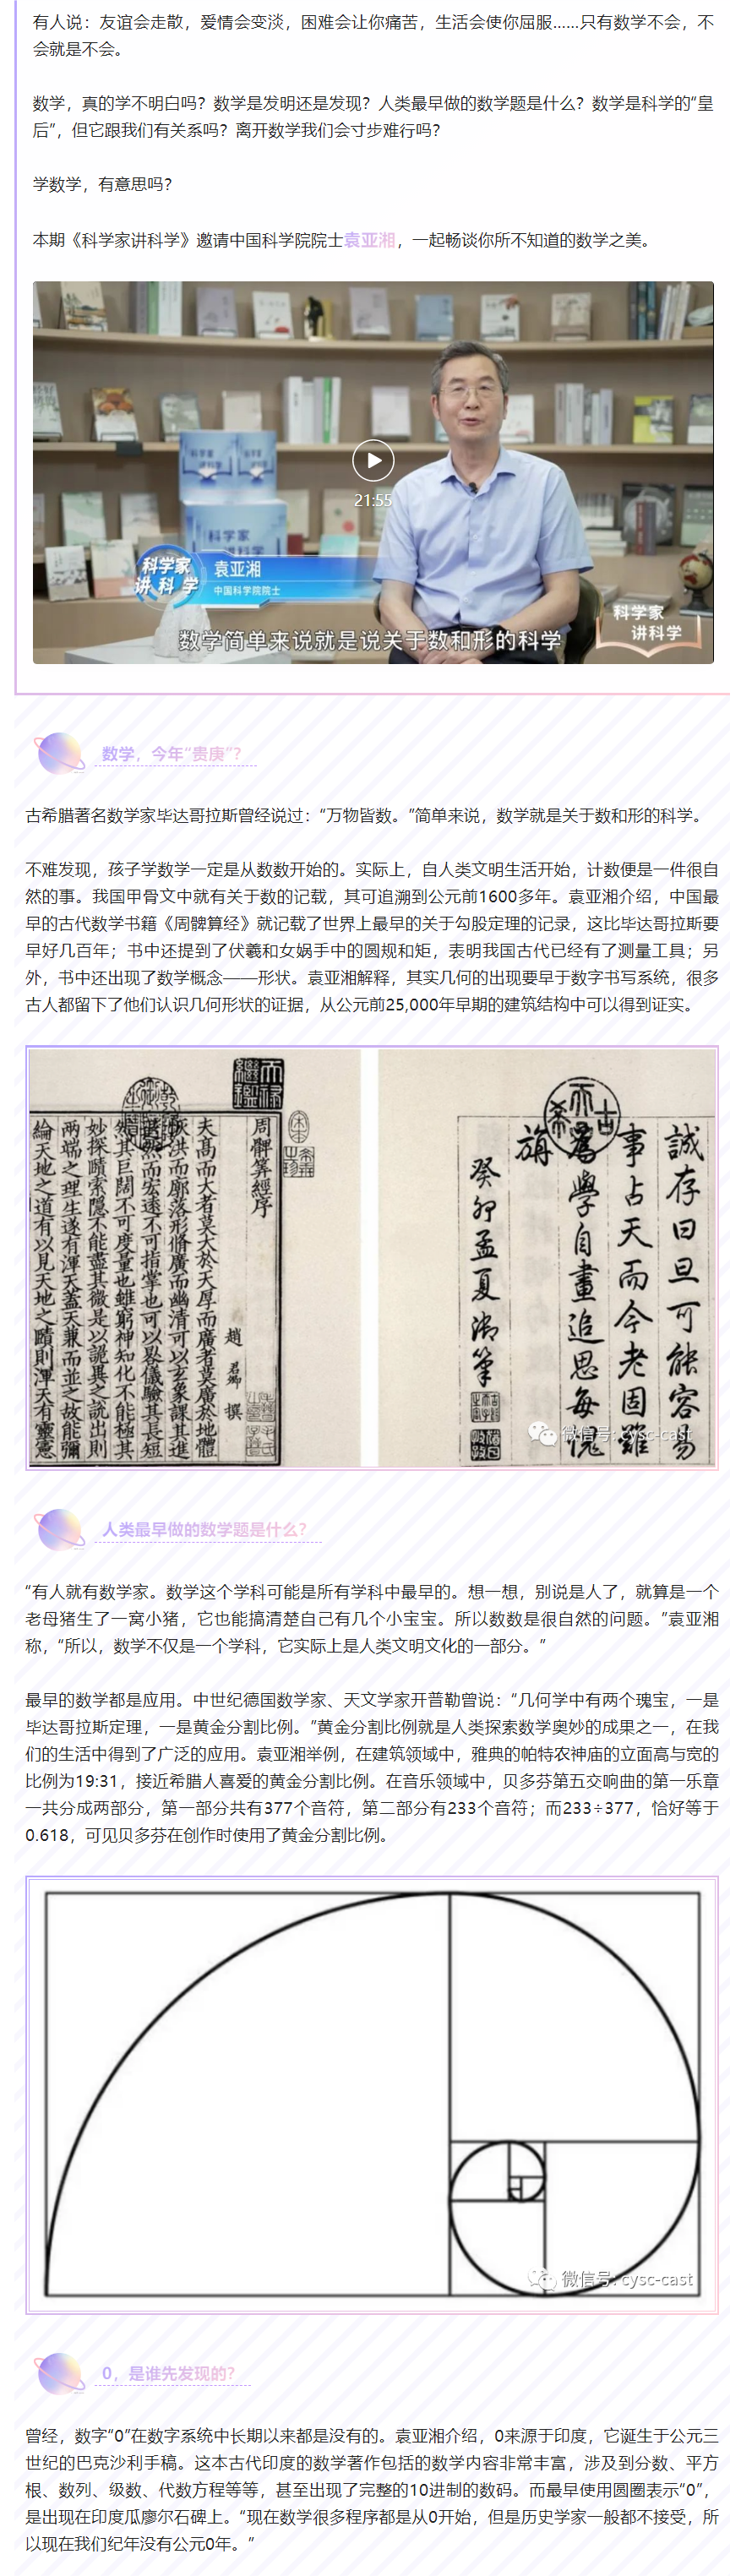 有人说：友谊会走散，爱情会变淡，困难会让你痛苦，生活会使你屈服……只有数学不会，不
会就是不会。
数学，真的学不明白吗？数学是发明还是发现？人类最早做的数学题是什么？数学是科学的“皇
后”，但它跟我们有关系吗？离开数学我们会寸步难行吗？
学数学，有意思吗？
本期《科学家讲科学》邀请中国科学院院士袁亚湘，一起畅谈你所不知道的数学之美。
21:55
科学家
讲科学
袁亚湘
中国科学院院士
科学家
讲科学
数学简单来说就是说关于数和形的科学
数学，今年“贵庚”？
古希腊著名数学家毕达哥拉斯曾经说过：“万物皆数。”简单来说，数学就是关于数和形的科学。
不难发现，孩子学数学一定是从数数开始的。实际上，自人类文明生活开始，计数便是一件很自
然的事。我国甲骨文中就有关于数的记载，其可追溯到公元前1600多年。袁亚湘介绍，中国最
早的古代数学书籍《周髀算经》就记载了世界上最早的关于勾股定理的记录，这比毕达哥拉斯要
早好几百年；书中还提到了伏羲和女娲手中的圆规和矩，表明我国古代已经有了测量工具；另
外，书中还出现了数学概念——形状。袁亚湘解释，其实几何的出现要早于数字书写系统，很多
古人都留下了他们认识几何形状的证据，从公元前25,000年早期的建筑结构中可以得到证实。
誠存日旦可能容易
事占天而今老固難
為學自畫追思每愧
旃
癸卯孟夏御筆
周髀算經序
趙君卿撰
夫高而大者莫大於天厚而廣者莫廣於地體
恢洪而廓落形脩廣而幽清可以玄象課其進
退然而宏遠不可指掌也可以晷儀驗其長短
然其巨闊不可度量也雖窮神知化不能極其
妙探賾索隱不能盡其微是以詭異之說出則
兩端之理生遂有渾天蓋天兼而並之故能彌
綸天地之道有以見天地之賾則渾天有靈憲
微信号: cysc-cast
人类最早做的数学题是什么？
“有人就有数学家。数学这个学科可能是所有学科中最早的。想一想，别说是人了，就算是一个
老母猪生了一窝小猪，它也能搞清楚自己有几个小宝宝。所以数数是很自然的问题。”袁亚湘
称，“所以，数学不仅是一个学科，它实际上是人类文明文化的一部分。”
最早的数学都是应用。中世纪德国数学家、天文学家开普勒曾说：“几何学中有两个瑰宝，一是
毕达哥拉斯定理，一是黄金分割比例。”黄金分割比例就是人类探索数学奥妙的成果之一，在我
们的生活中得到了广泛的应用。袁亚湘举例，在建筑领域中，雅典的帕特农神庙的立面高与宽的
比例为19:31，接近希腊人喜爱的黄金分割比例。在音乐领域中，贝多芬第五交响曲的第一乐章
一共分成两部分，第一部分共有377个音符，第二部分有233个音符；而233÷377，恰好等于
0.618，可见贝多芬在创作时使用了黄金分割比例。
微信号: cysc-cast
0，是谁先发现的？
曾经，数字“0”在数字系统中长期以来都是没有的。袁亚湘介绍，0来源于印度，它诞生于公元三
世纪的巴克沙利手稿。这本古代印度的数学著作包括的数学内容非常丰富，涉及到分数、平方
根、数列、级数、代数方程等等，甚至出现了完整的10进制的数码。而最早使用圆圈表示“0”，
是出现在印度瓜廖尔石碑上。“现在数学很多程序都是从0开始，但是历史学家一般都不接受，所
以现在我们纪年没有公元0年。”